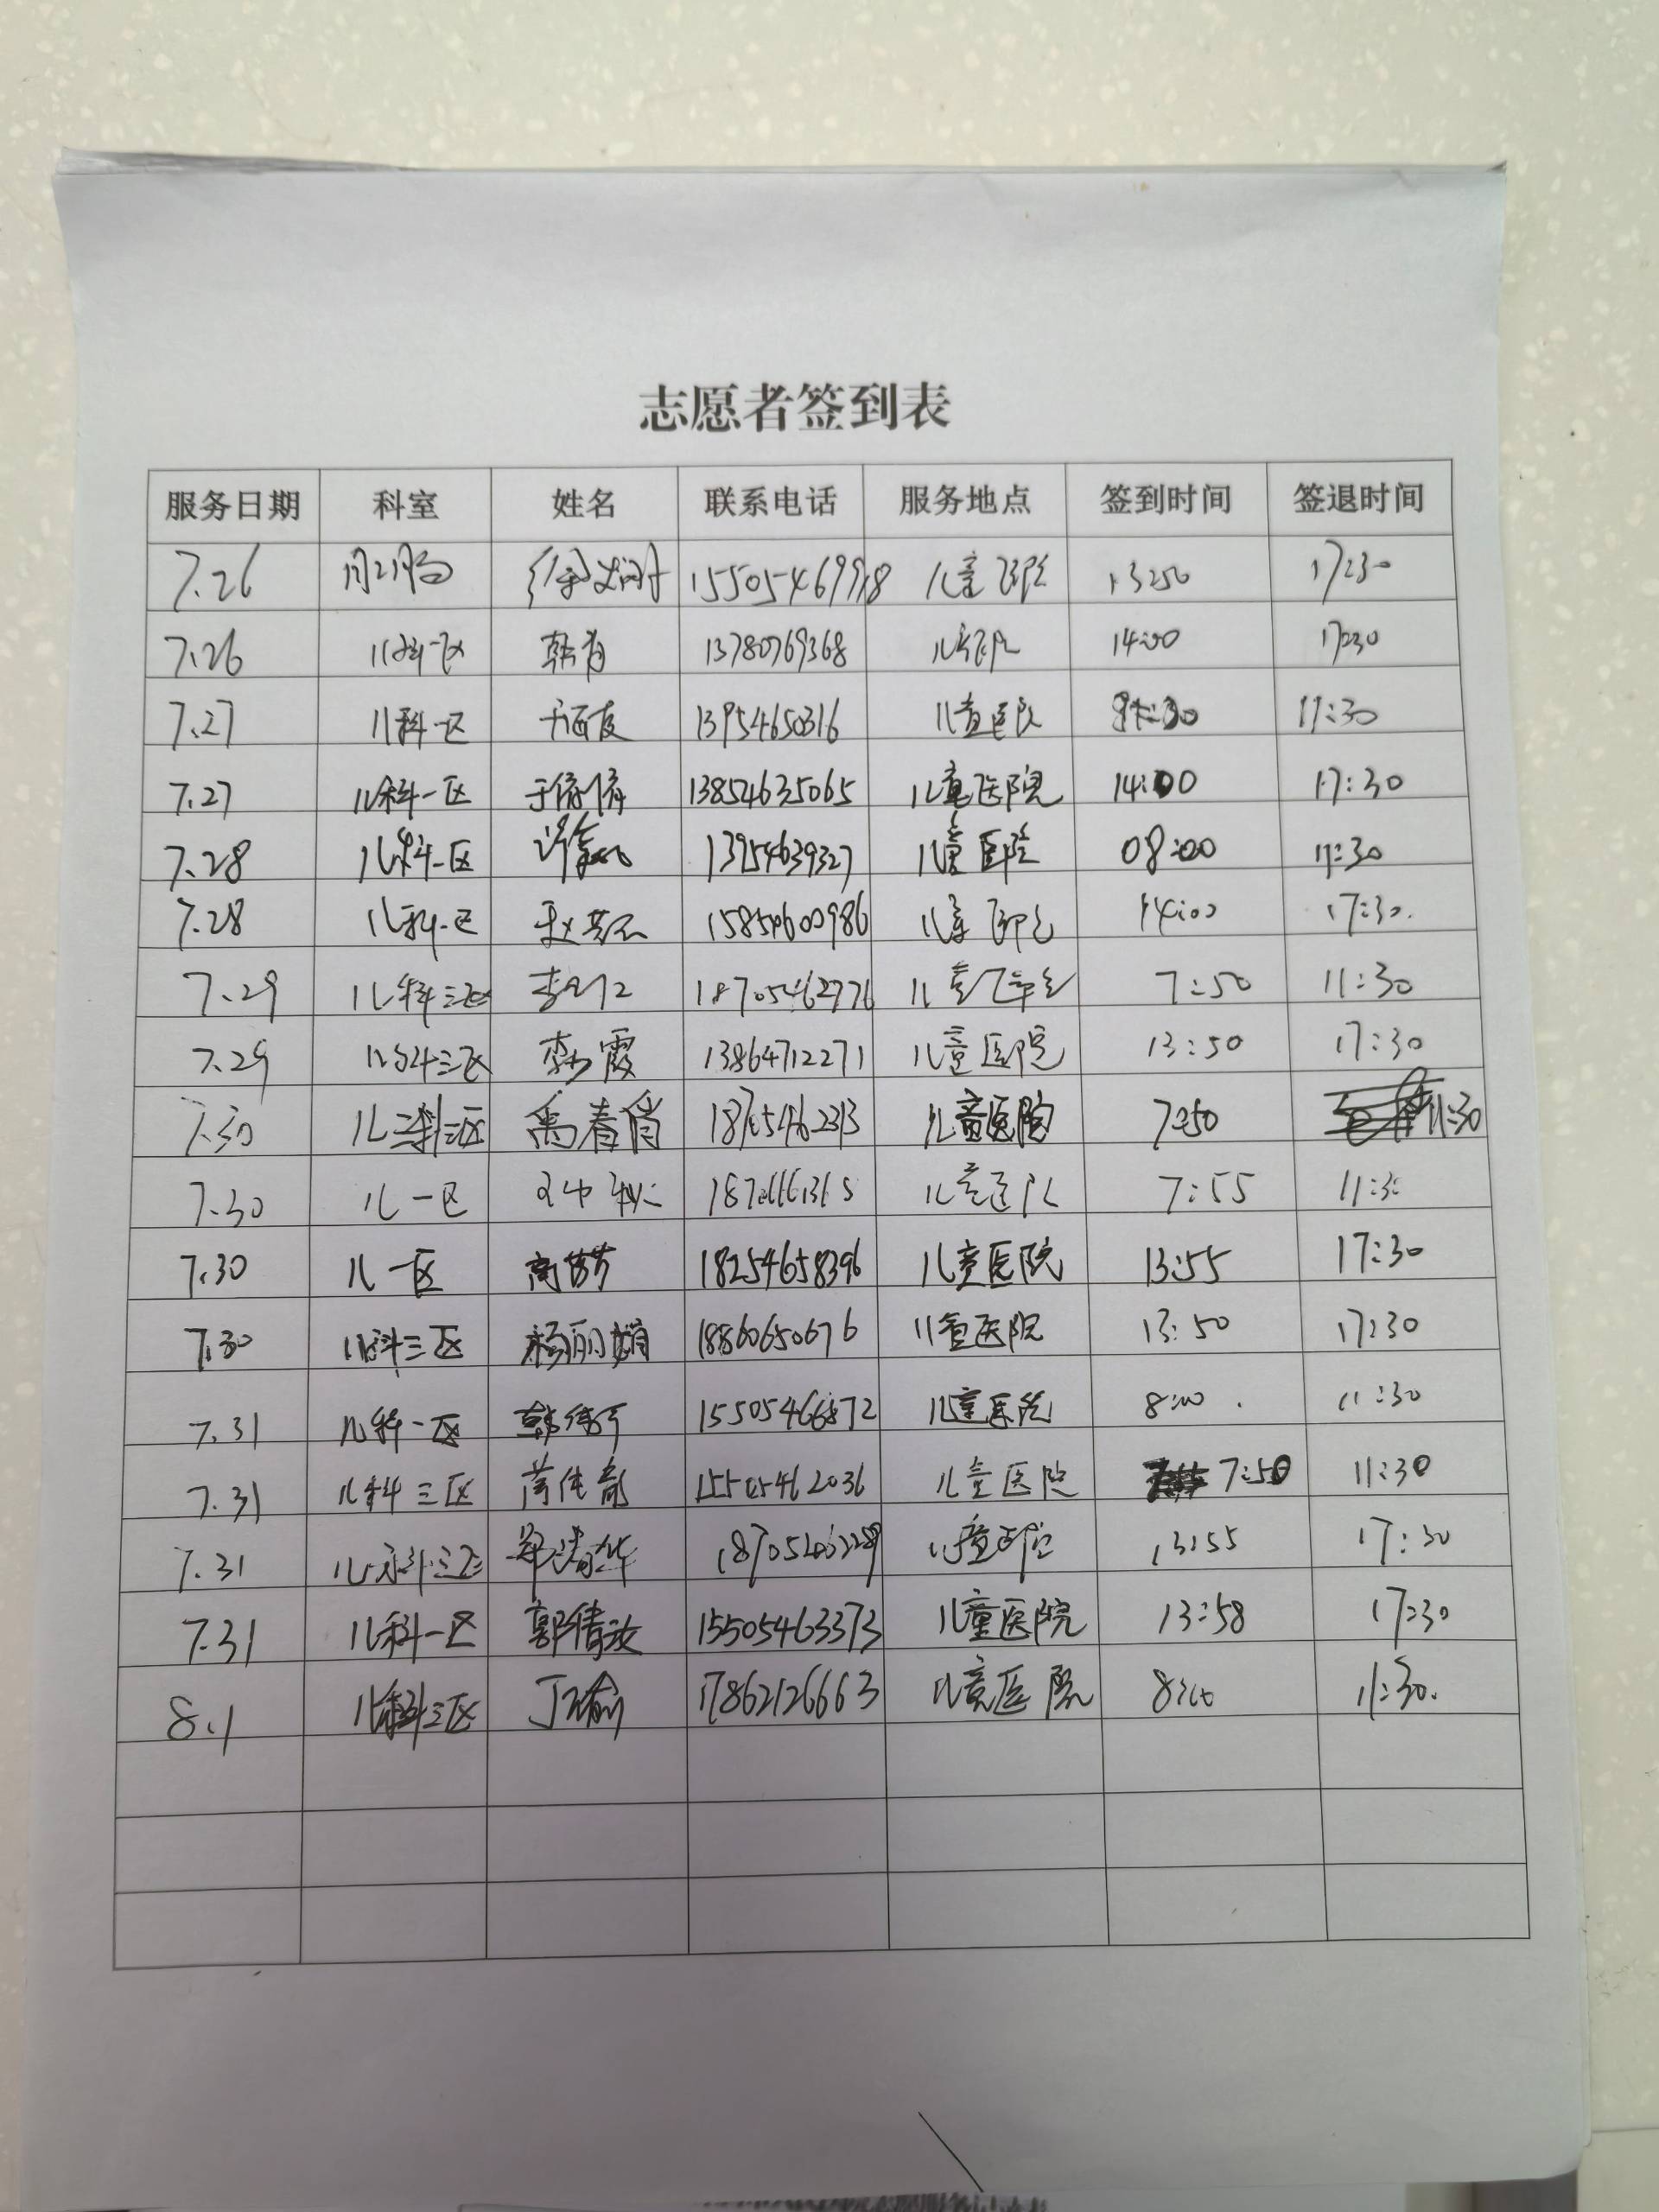 志愿者签到表
服务日期 科室 姓名 联系电话 服务地点 签到时间 签退时间
7.26 15505469998 儿童医院 13:50 17:30
7.26 儿科一区 13780769368 儿童医院 14:00 17:30
7.27 儿科一区 13954650316 儿童医院 11:30
7.27 儿科一区 于倩倩 13854635065 儿童医院 14:00 17:30
7.28 儿科一区 13954639327 儿童医院 08:00 11:30
7.28 儿科一区 15854600986 儿童医院 14:00 17:30
7.29 儿科三区 18705462776 儿童医院 7:50 11:30
7.29 儿科三区 13864712271 儿童医院 13:50 17:30
7.30 儿科三区 禹春俏 儿童医院 7:50 11:30
7.30 儿一区 儿童医院 7:55 11:30
7.30 儿一区 高梦梦 18254658396 儿童医院 13:55 17:30
7.30 儿科三区 杨丽娟 18860650676 儿童医院 13:50 17:30
7.31 儿科一区 15505466872 儿童医院 8:00 11:30
7.31 儿科三区 15505462036 儿童医院 7:50 11:30
7.31 儿科三区 儿童医院 13:55 17:30
7.31 儿科一区 郭倩汝 15505463373 儿童医院 13:58 17:30
8.1 儿科三区 17862126663 儿童医院 8:00 11:30